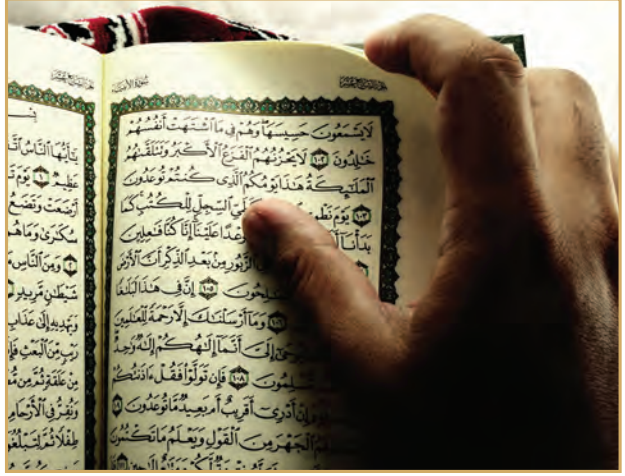 سُورَةُ الْأَنْبِيَاء
لَا يَسْمَعُونَ حَسِيسَهَا وَهُمْ فِى مَا ٱشْتَهَتْ أَنفُسُهُمْ
خَٰلِدُونَ ١٠٢ لَا يَحْزُنُهُمُ ٱلْفَزَعُ ٱلْأَكْبَرُ وَتَتَلَقَّىٰهُمُ
ٱلْمَلَٰٓئِكَةُ هَٰذَا يَوْمُكُمُ ٱلَّذِى كُنتُمْ تُوعَدُونَ
١٠٣ يَوْمَ نَطْوِى ٱلسِّجِلِّ لِلْكُتُبِ كَمَا
بَدَأْنَآ وَعْدًا عَلَيْنَآ إِنَّا كُنَّا فَٰعِلِينَ
ٱلزَّبُورِ مِنۢ بَعْدِ ٱلذِّكْرِ أَنَّ ٱلْأَرْضَ
١٠٥ إِنَّ فِى هَٰذَا لَبَلَٰغًا
وَمَآ أَرْسَلْنَٰكَ إِلَّا رَحْمَةً لِّلْعَٰلَمِينَ
يُوحَىٰٓ إِلَىَّ أَنَّمَآ إِلَٰهُكُمْ إِلَٰهٌ وَٰحِدٌ
مُّسْلِمُونَ ١٠٨ فَإِن تَوَلَّوْا۟ فَقُلْ ءَاذَنتُكُمْ
وَإِنْ أَدْرِىٓ أَقَرِيبٌ أَم بَعِيدٌ مَّا تُوعَدُونَ
ٱلْجَهْرَ مِنَ ٱلْقَوْلِ وَيَعْلَمُ مَا تَكْتُمُونَ
يَٰٓأَيُّهَا ٱلنَّاسُ
عَظِيمٌ ١ يَوْمَ
أَرْضَعَتْ وَتَضَعُ
سُكَٰرَىٰ وَمَا هُم
٢ وَمِنَ ٱلنَّاسِ
شَيْطَٰنٍ مَّرِيدٍ
وَيَهْدِيهِ إِلَىٰ عَذَابِ
رَيْبٍ مِّنَ ٱلْبَعْثِ
مِنْ عَلَقَةٍ ثُمَّ مِن
وَنُقِرُّ فِى ٱلْأَرْحَامِ
طِفْلًا ثُمَّ لِتَبْلُغُوٓا۟